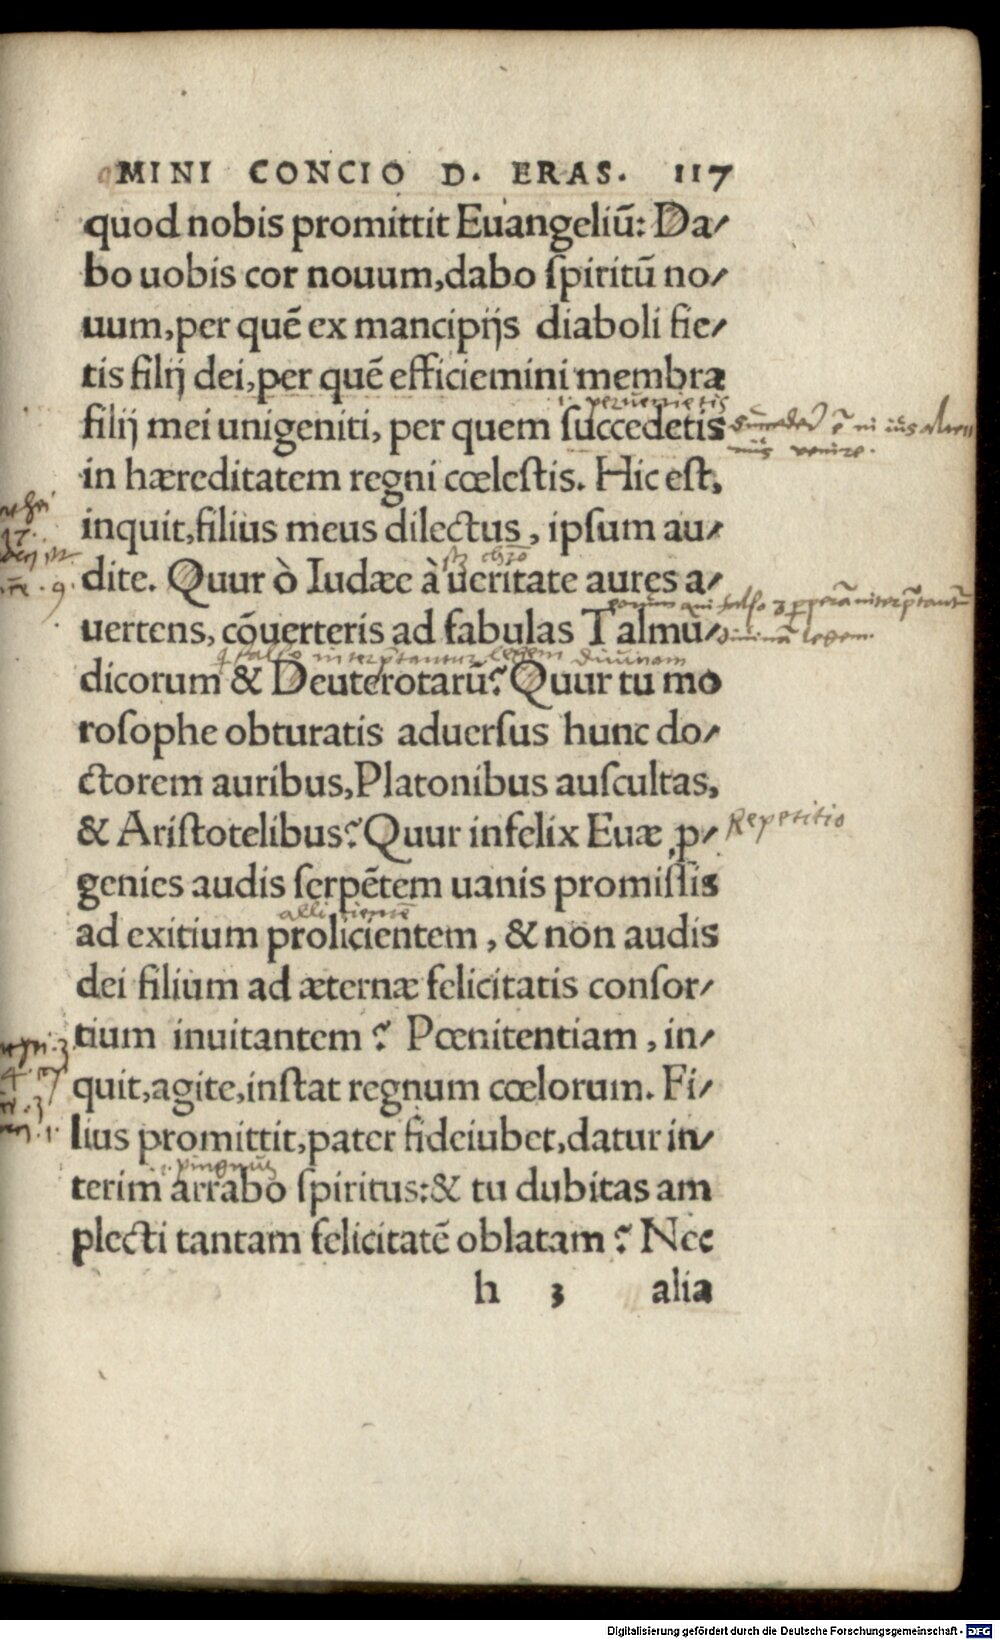 MINI CONCIO D. ERAS. 117
quod nobis promittit Euangeliū: Da-
bo uobis cor nouum, dabo ſpiritū no-
uum, per quē ex mancipijs diaboli fie-
tis filij dei, per quē efficiemini membra
i. peruenietis
filij mei unigeniti, per quem ſuccedetis
in hæreditatem regni cœleſtis. Hic eſt,
inquit, filius meus dilectus, ipſum au-
dite. Quur ò Iudæe à ueritate aures a-
uertens, cōuerteris ad fabulas Talmu-
falso interp̄tantur legem diuinam
dicorum & Deuterotarū? Quur tu mo
roſophe obturatis aduerſus hunc do-
ctorem auribus, Platonibus auſcultas,
& Ariſtotelibus? Quur infelix Euæ ꝓ-
Repetitio
genies audis ſerpētem uanis promiſſis
ad exitium prolicientem, & non audis
dei filium ad æternæ felicitatis conſor-
tium inuitantem? Pœnitentiam, in-
quit, agite, inſtat regnum cœlorum. Fi-
lius promittit, pater fideiubet, datur in-
terim arrabo ſpiritus: & tu dubitas am
plecti tantam felicitatē oblatam? Nec
h 3 alia
Digitalisierung gefördert durch die Deutsche Forschungsgemeinschaft - DFG